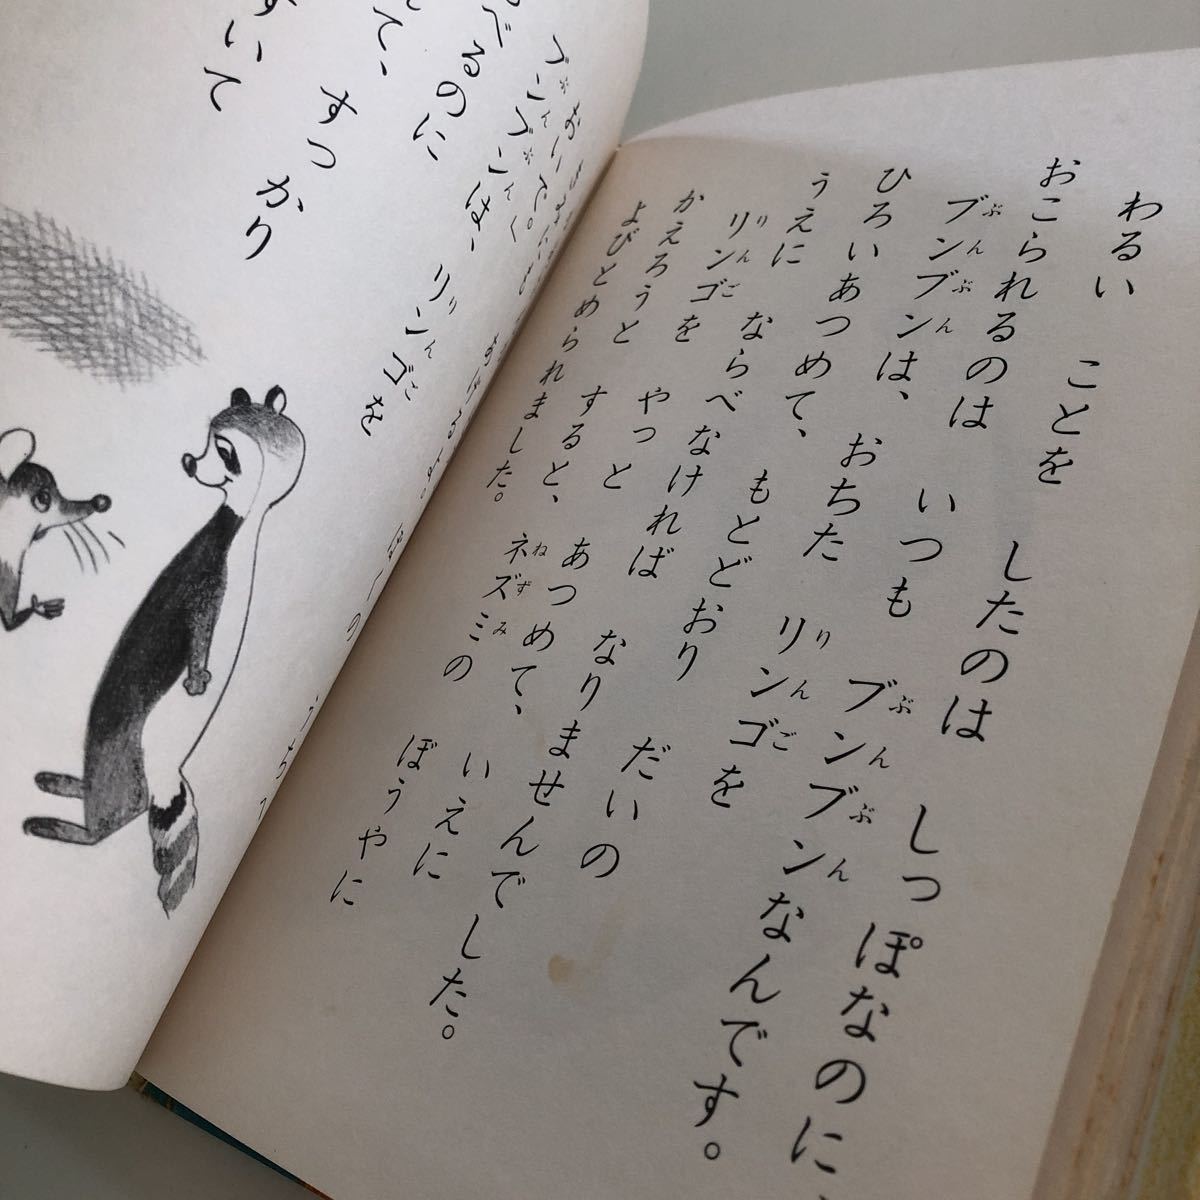 わるい ことを したのは しっぽなのに、
おこられるのは いつも ブンブンなんです。
ブンブンは、 おちた リンゴを
ひろいあつめて、 もとどおり だいの
うえに ならべなければ なりませんでした。
リンゴを やっと あつめて、 いえに
かえろうと すると、 ネズミの ぼうやに
よびとめられました。
おいで。
ブンブンは、 リンゴを
べるのに
て、 すっかり
すいて